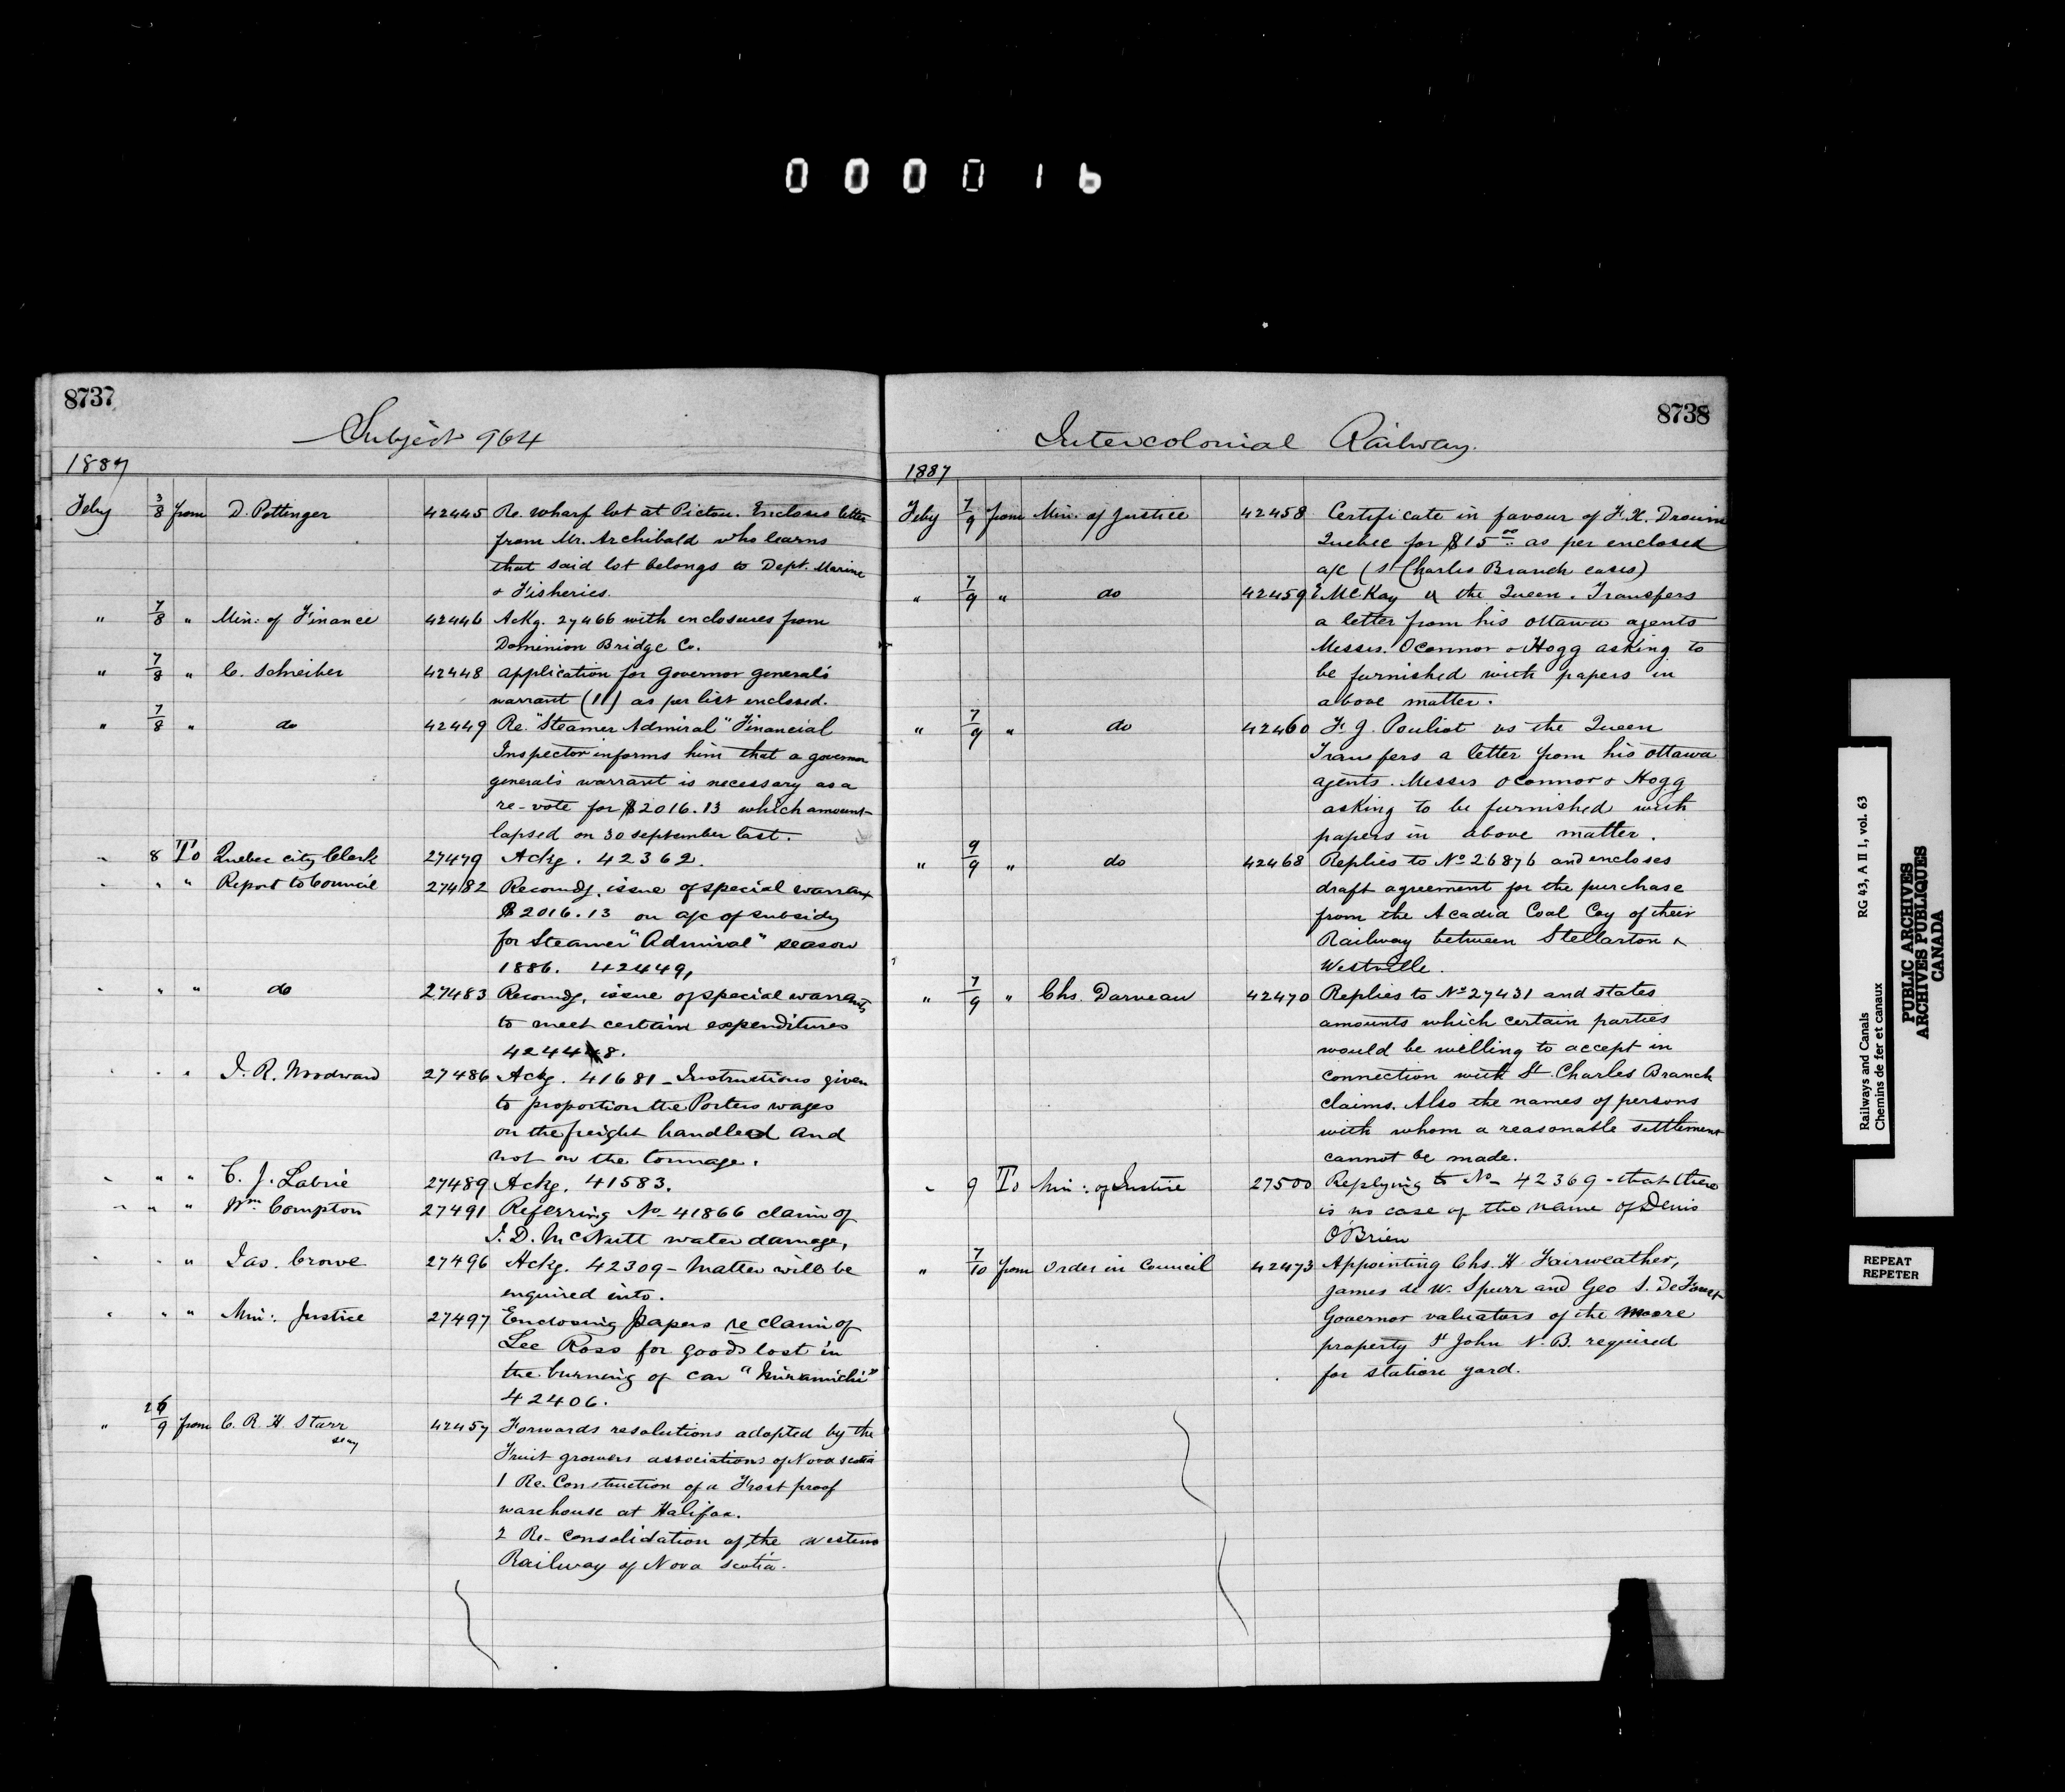 000016
8737
Subject 964
1887
Feby 3/8 from D. Pottinger 42445 Re. wharf lot at Pictou. Encloses letter
from Mr. Archibald who learns
that said lot belongs to Dept. Marine
& Fisheries.
" 7/8 " Min: of Finance 42446 Ackg. 27466 with enclosures from
Dominion Bridge Co.
" 7/8 " C. Schreiber 42448 application for Governor general's
warrant (11) as per list enclosed.
" 7/8 " do 42449 Re. "Steamer Admiral" Financial
Inspector informs him that a governor
general's warrant is necessary as a
re-vote for $2016.13 which amount
lapsed on 30 september last.
" 8 To Quebec city Clerk 27479 Ackg. 42362.
" " " Report to Council 27482 Recomdg. issue of special warrant
$2016.13 on a/c of subsidy
for Steamer "Admiral" season
1886. 42449,
" " " do 27483 Recomdg. issue of special warrants
to meet certain expenditures
42448.
" " " J. R. Woodward 27486 Ackg. 41681 - Instructions given
to proportion the Porters wages
on the freight handled and
not on the tonnage.
" " " C. J. Labrie 27489 Ackg. 41583.
" " " Wm. Compton 27491 Referring No 41866 claim of
J. D. McNutt water damage,
" " " Jas. Crowe 27496 Ackg. 42309 - Matter will be
enquired into.
" " " Min: Justice 27497 Enclosing papers re claim of
Lee Ross for goods lost in
the burning of car "Miramichi"
42406.
" 26/9 from C. R. H. Starr 42457 Forwards resolutions adopted by the
Secy
Fruit growers associations of Nova Scotia
1 Re. Construction of a Frost proof
warehouse at Halifax.
2 Re- Consolidation of the western
Railway of Nova Scotia.
8738
Intercolonial Railway.
1887
Feby 7/9 from Min: of Justice 42458 Certificate in favour of F. X. Drouin
Quebec for $15.00 as per enclosed
a/c (St Charles Branch cases)
" 7/9 " do 42459 E McKay vs the Queen. Transfers
a letter from his Ottawa agents
Messrs. Oconnor & Hogg asking to
be furnished with papers in
above matter.
" 7/9 " do 42460 F. J. Pouliot vs the Queen
Transfers a letter from his Ottawa
agents. Messrs Oconnor & Hogg
asking to be furnished with
papers in above matter.
" 9/9 " do 42468 Replies to No 26876 and encloses
draft agreement for the purchase
from the Acadia Coal Coy of their
Railway between Stellarton &
Westville.
" 7/9 " Chs. Darveau 42470 Replies to No 27431 and states
amounts which certain parties
would be willing to accept in
connection with St. Charles Branch
claims. Also the names of persons
with whom a reasonable settlement
cannot be made.
" 9 To Min: of Justice 27500 Replying to No 42369 - that there
is no case of the name of Denis
O'Brien
" 7/10 from Order in Council 42473 Appointing Chs. H Fairweather,
James de W. Spurr and Geo S. DeForest
Governor valuators of the Moore
property St John N. B. required
for station yard.
Railways and Canals RG 43, A II 1, vol. 63
Chemins de fer et canaux
PUBLIC ARCHIVES
ARCHIVES PUBLIQUES
CANADA
REPEAT
REPETER